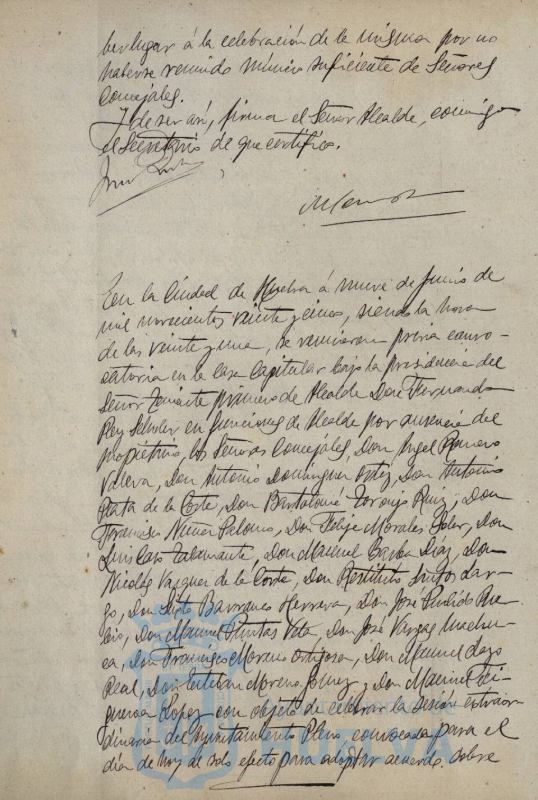 ber lugar á la celebración de la misma por no
haberse reunido número suficiente de Señores
Concejales.
Y de ser así, firma el Señor Alcalde, conmigo
el Secretario de que certifico.
En la Ciudad de Huelva á nueve de Junio de
mil novecientos veinte y cinco, siendo la hora
de las veinte y una, se reunieron previa convo-
catoria en la Casa Capitular bajo la presidencia del
Señor Teniente primero de Alcalde Don Fernando
Rey en funciones de Alcalde por ausencia del
propietario, los Señores Concejales, Don Angel Romero
Valera, Don Antonio Dominguez Ortiz, Don Antonio
Plata de la Corte, Don Bartolomé Toronjo Ruiz, Don
Francisco Núñez Palomo, Don Felipe Morales Soler, Don
Luis Talamante, Don Manuel Díaz, Don
Nicolás Vazquez de la Corte, Don Restituto Santos Lar-
go, Don Sixto Barranco Herrera, Don José Pulido Ru-
bio, Don Manuel Puntas Vela, Don José Vargas Machu-
ca, Don Francisco Moreno Ortigosa, Don Manuel Lazo
Real, Don Esteban Moreno Gomez y Don Manuel Fi-
gueroa Lopez con objeto de celebrar la sesión extraor-
dinaria del Ayuntamiento Pleno convocada para el
día de hoy al solo efecto para adoptar acuerdo sobre
HUELVA